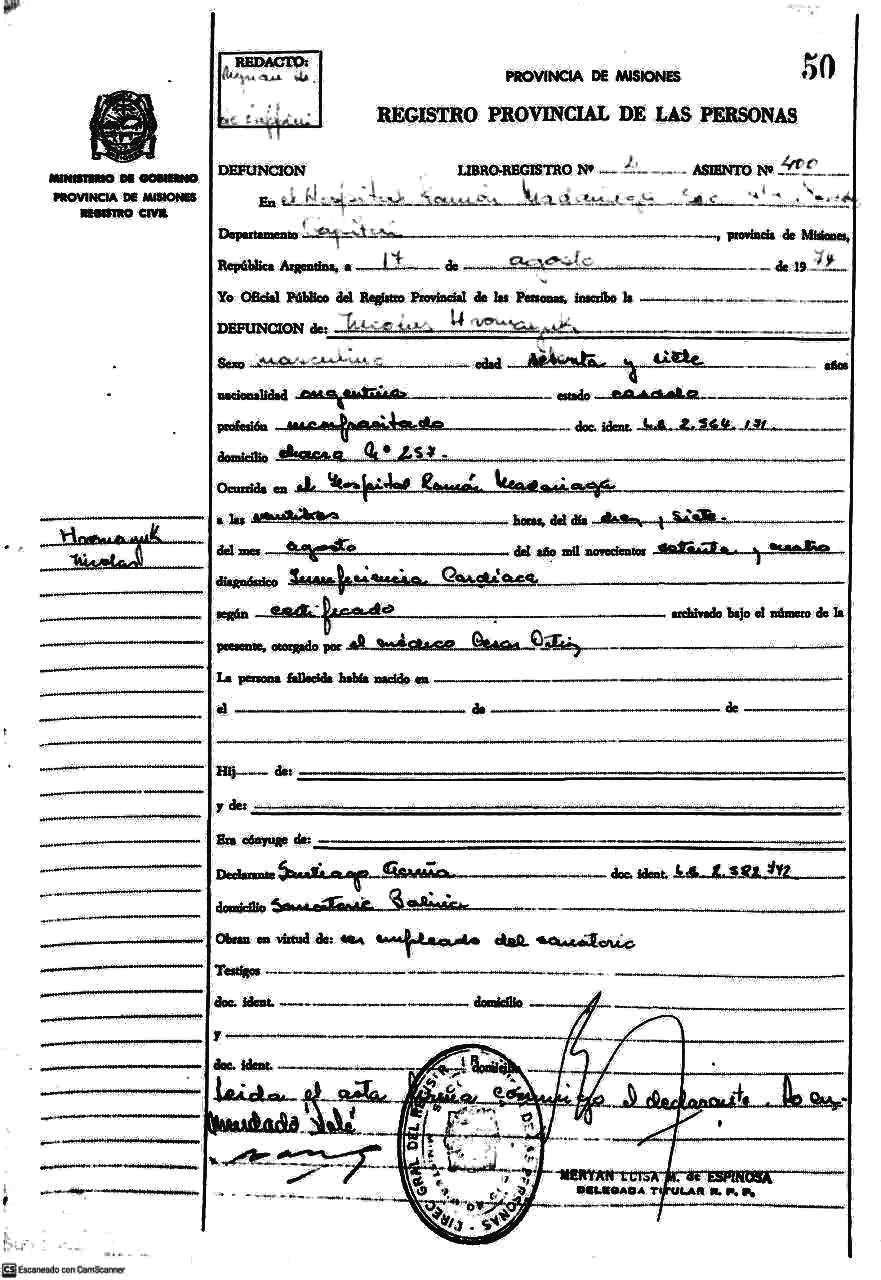 50
REDACTO:
PROVINCIA DE MISIONES
REGISTRO PROVINCIAL DE LAS PERSONAS
MINISTERIO DE GOBIERNO
PROVINCIA DE MISIONES
REGISTRO CIVIL
DEFUNCION LIBRO-REGISTRO Nº ASIENTO Nº 400
En el Hospital Ramón Madariaga
Departamento Capital, provincia de Misiones,
República Argentina, a 17 de agosto de 1974
Yo Oficial Público del Registro Provincial de las Personas, inscribo la
DEFUNCION de: Nicolas Hromayuk
Sexo masculino edad setenta y siete años
nacionalidad argentina estado casado
profesión incapacitado doc. ident. L.E 2.564.131.
domicilio chacra Nº 257.
Ocurrida en el Hospital Ramón Madariaga
a las veintitres horas, del día diez y siete.
Hromayuk
Nicolas
del mes agosto del año mil novecientos setenta y cuatro
diagnóstico Insuficiencia Cardiaca
según certificado archivado bajo el número de la
presente, otorgado por el médico Cesar Ortiz
La persona fallecida había nacido en
el de de
Hij de:
y de:
Era cónyuge de:
Declarante Santiago Acuña doc. ident. L.E 2.582.742
domicilio Sanatorio
Obran en virtud de: ser empleado del sanatorio
Testigos
doc. ident. domicilio
y
doc. ident. domicilio
Leida el acta firma conmigo el declarante. Lo en-
mendado Vale
DIREC GRAL DEL REGISTR DE LAS PERSONAS
MERYAN LUISA M. de ESPINOSA
DELEGADA TITULAR R. P. P.
CS Escaneado con CamScanner